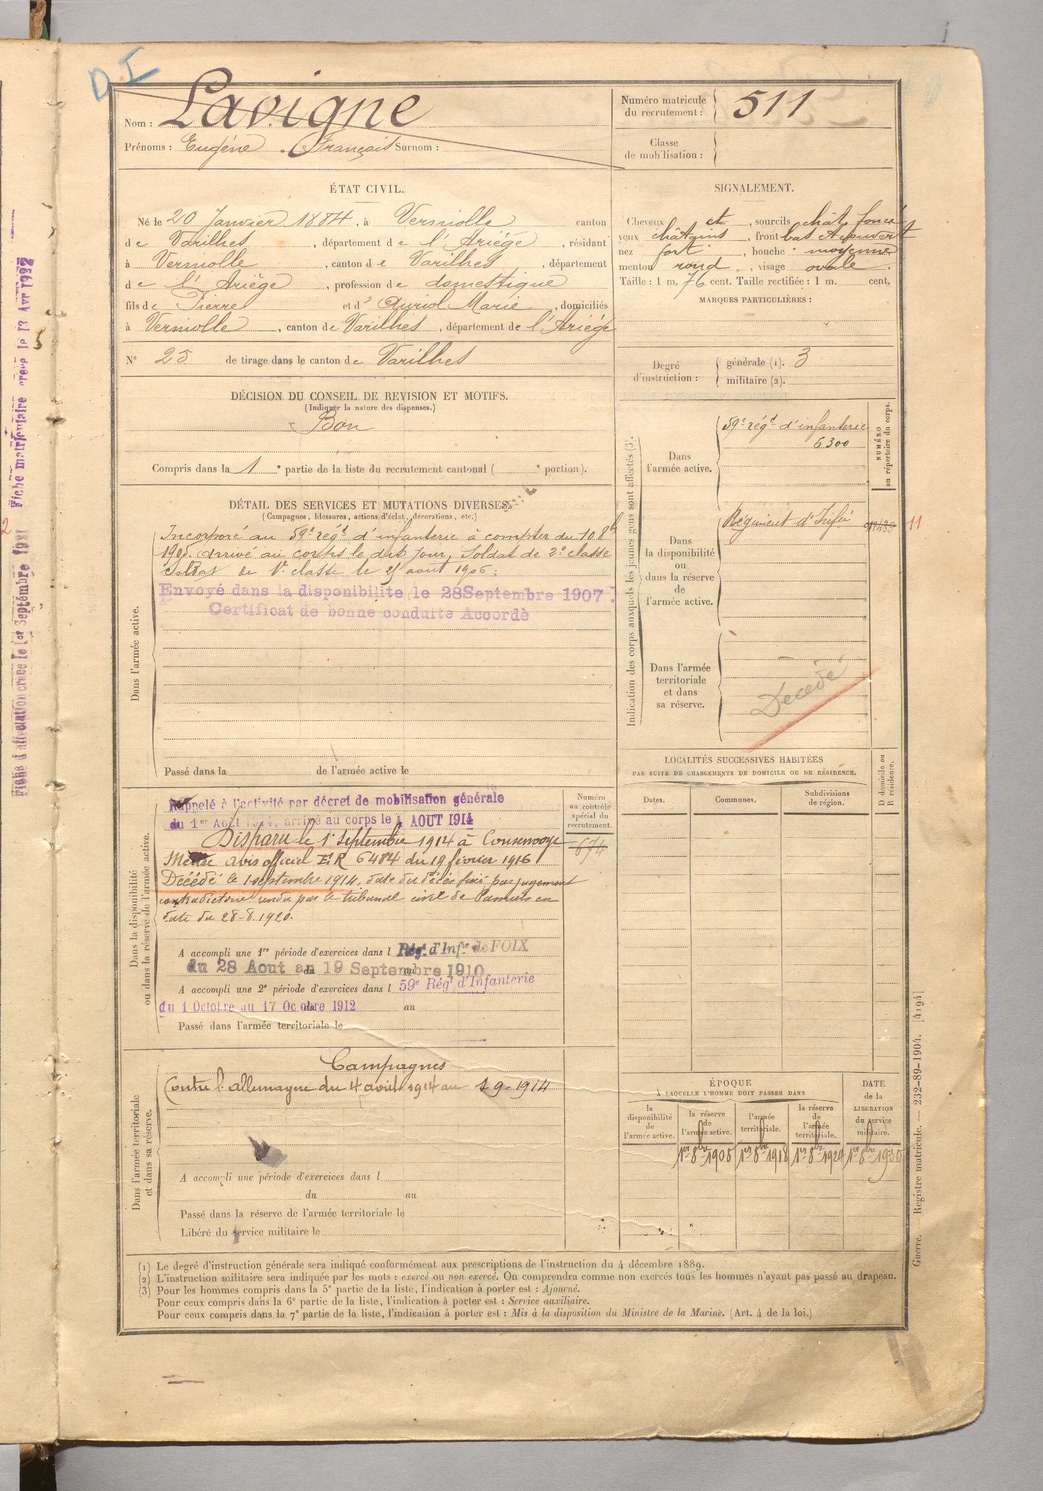 DI
Nom : Lavigne
Prénoms : Eugéne François Surnom :
Numéro matricule du recrutement : 511
Classe de mobilisation :
ÉTAT CIVIL.
Né le 20 Janvier 1884, à Verniolle canton
de Varilhes, département de l'Ariège, résidant
à Verniolle, canton de Varilhes, département
de l'Ariège, profession de domestique
fils de Pierre et d' Auriol Marie, domiciliés
à Verniolle, canton de Varilhes, département de l'Ariège
N° 25 de tirage dans le canton de Varilhes
SIGNALEMENT.
Cheveux ch, sourcils chât. foncé
yeux châtains, front bas découvert
nez fort, bouche moyenne
menton rond, visage ovale.
Taille : 1 m. 76 cent. Taille rectifiée : 1 m. cent.
MARQUES PARTICULIÈRES :
Degré d'instruction : générale (1). 3
militaire (2).
DÉCISION DU CONSEIL DE REVISION ET MOTIFS.
(Indiquer la nature des dispenses.)
Bon
Compris dans la 1e partie de la liste du recrutement cantonal ( e portion).
DÉTAIL DES SERVICES ET MUTATIONS DIVERSES.
(Campagnes, blessures, actions d'éclat, décorations, etc.)
Dans l'armée active.
Incorporé au 59e régt d'infanterie à compter du 10 8b
arrivé au corps le dit jour, Soldat de 2e classe
Soldat de 1e classe le 25 août 1906.
Envoyé dans la disponibilité le 28 Septembre 1907.
Certificat de bonne conduite Accordé
Passé dans la de l'armée active le
Indication des corps auxquels les jeunes gens sont affectés (3).
NUMÉRO au répertoire du corps.
Dans l'armée active.
59e régt d'infanterie
6300
Dans la disponibilité ou dans la réserve de l'armée active.
Régiment d'Infie
11
Dans l'armée territoriale et dans sa réserve.
Décédé
LOCALITÉS SUCCESSIVES HABITÉES
PAR SUITE DE CHANGEMENTS DE DOMICILE OU DE RÉSIDENCE.
Dates. Communes. Subdivisions de région.
D domicile ou R résidence.
Dans la disponibilité ou dans la réserve de l'armée active.
Numéro au contrôle spécial du recrutement.
674
Rappelé à l'activité par décret de mobilisation générale
du 1er Aout 1914, arrivé au corps le 4 AOUT 1914
Disparu le 1 septembre 1914 à Consenvoye
Meuse avis officiel ER 6484 du 19 février 1916
Décédé le 1 septembre 1914, date du décès fixé par jugement
contradictoire rendu par le tribunal civil de Pamiers en
date du 28-8.1920.
A accompli une 1re période d'exercices dans l Régt d'Infie de FOIX
du 28 Aout au 19 Septembre 1910
A accompli une 2e période d'exercices dans l 59e Régt d'Infanterie
du 1 Octobre au 17 Octobre 1912 au
Passé dans l'armée territoriale le
Dans l'armée territoriale et dans sa réserve.
Campagnes
Contre l'allemagne du 4 août 1914 au 1-9-1914
A accompli une période d'exercices dans l
du au
Passé dans la réserve de l'armée territoriale le
Libéré du service militaire le
ÉPOQUE
À LAQUELLE L'HOMME DOIT PASSER DANS
la disponibilité de l'armée active.
la réserve de l'armée active.
l'armée territoriale.
la réserve de l'armée territoriale.
DATE de la LIBÉRATION du service militaire.
1er 8bre 1908 1er 8bre 1918 1er 8bre 1924 1er 8bre 1930
(1) Le degré d'instruction générale sera indiqué conformément aux prescriptions de l'instruction du 4 décembre 1889.
(2) L'instruction militaire sera indiquée par les mots : exercé ou non exercé. On comprendra comme non exercés tous les hommes n'ayant pas passé au drapeau.
(3) Pour les hommes compris dans la 5e partie de la liste, l'indication à porter est : Ajourné.
Pour ceux compris dans la 6e partie de la liste, l'indication à porter est : Service auxiliaire.
Pour ceux compris dans la 7e partie de la liste, l'indication à porter est : Mis à la disposition du Ministre de la Marine. (Art. 4 de la loi.)
Guerre. — Registre matricule. — 232-89-1904. [4194]
Fiche d'affectation créée le 1er Septembre 1921
Fiche matriculaire créée le 13 Avr 1932